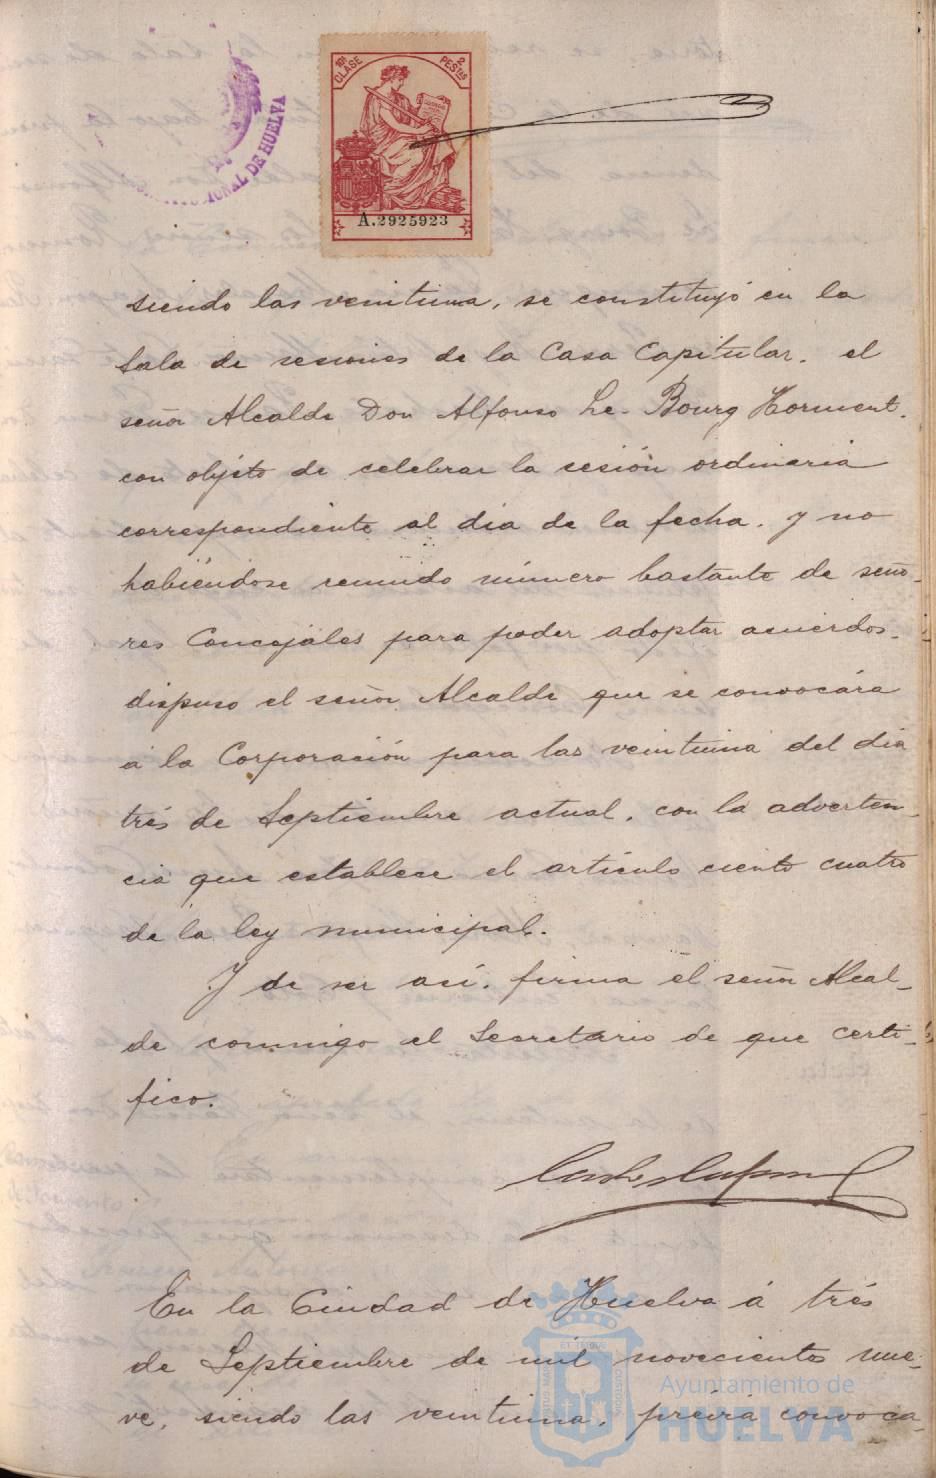 10ª CLASE 2 PESTAS
NAL DE HUELVA
A.2925923
siendo las veintiuna, se constituyó en la
Sala de sesiones de la Casa Capitular, el
señor Alcalde Don Alfonso Le-Bourg Horment,
con objeto de celebrar la sesión ordinaria
correspondiente al dia de la fecha, y no
habiéndose reunido número bastante de seño-
res Concejales para poder adoptar acuerdos,
dispuso el señor Alcalde que se convocára
á la Corporación para las veintiuna del dia
trés de Septiembre actual, con la adverten-
cia que establece el artículo ciento cuatro
de la ley municipal.
Y de ser así, firma el señor Alcal-
de conmigo el Secretario de que certi-
fico.
En la Ciudad de Huelva á trés
de Septiembre de mil novecientos nue-
ve, siendo las veintiuna, prévia convoca-
Ayuntamiento de
HUELVA